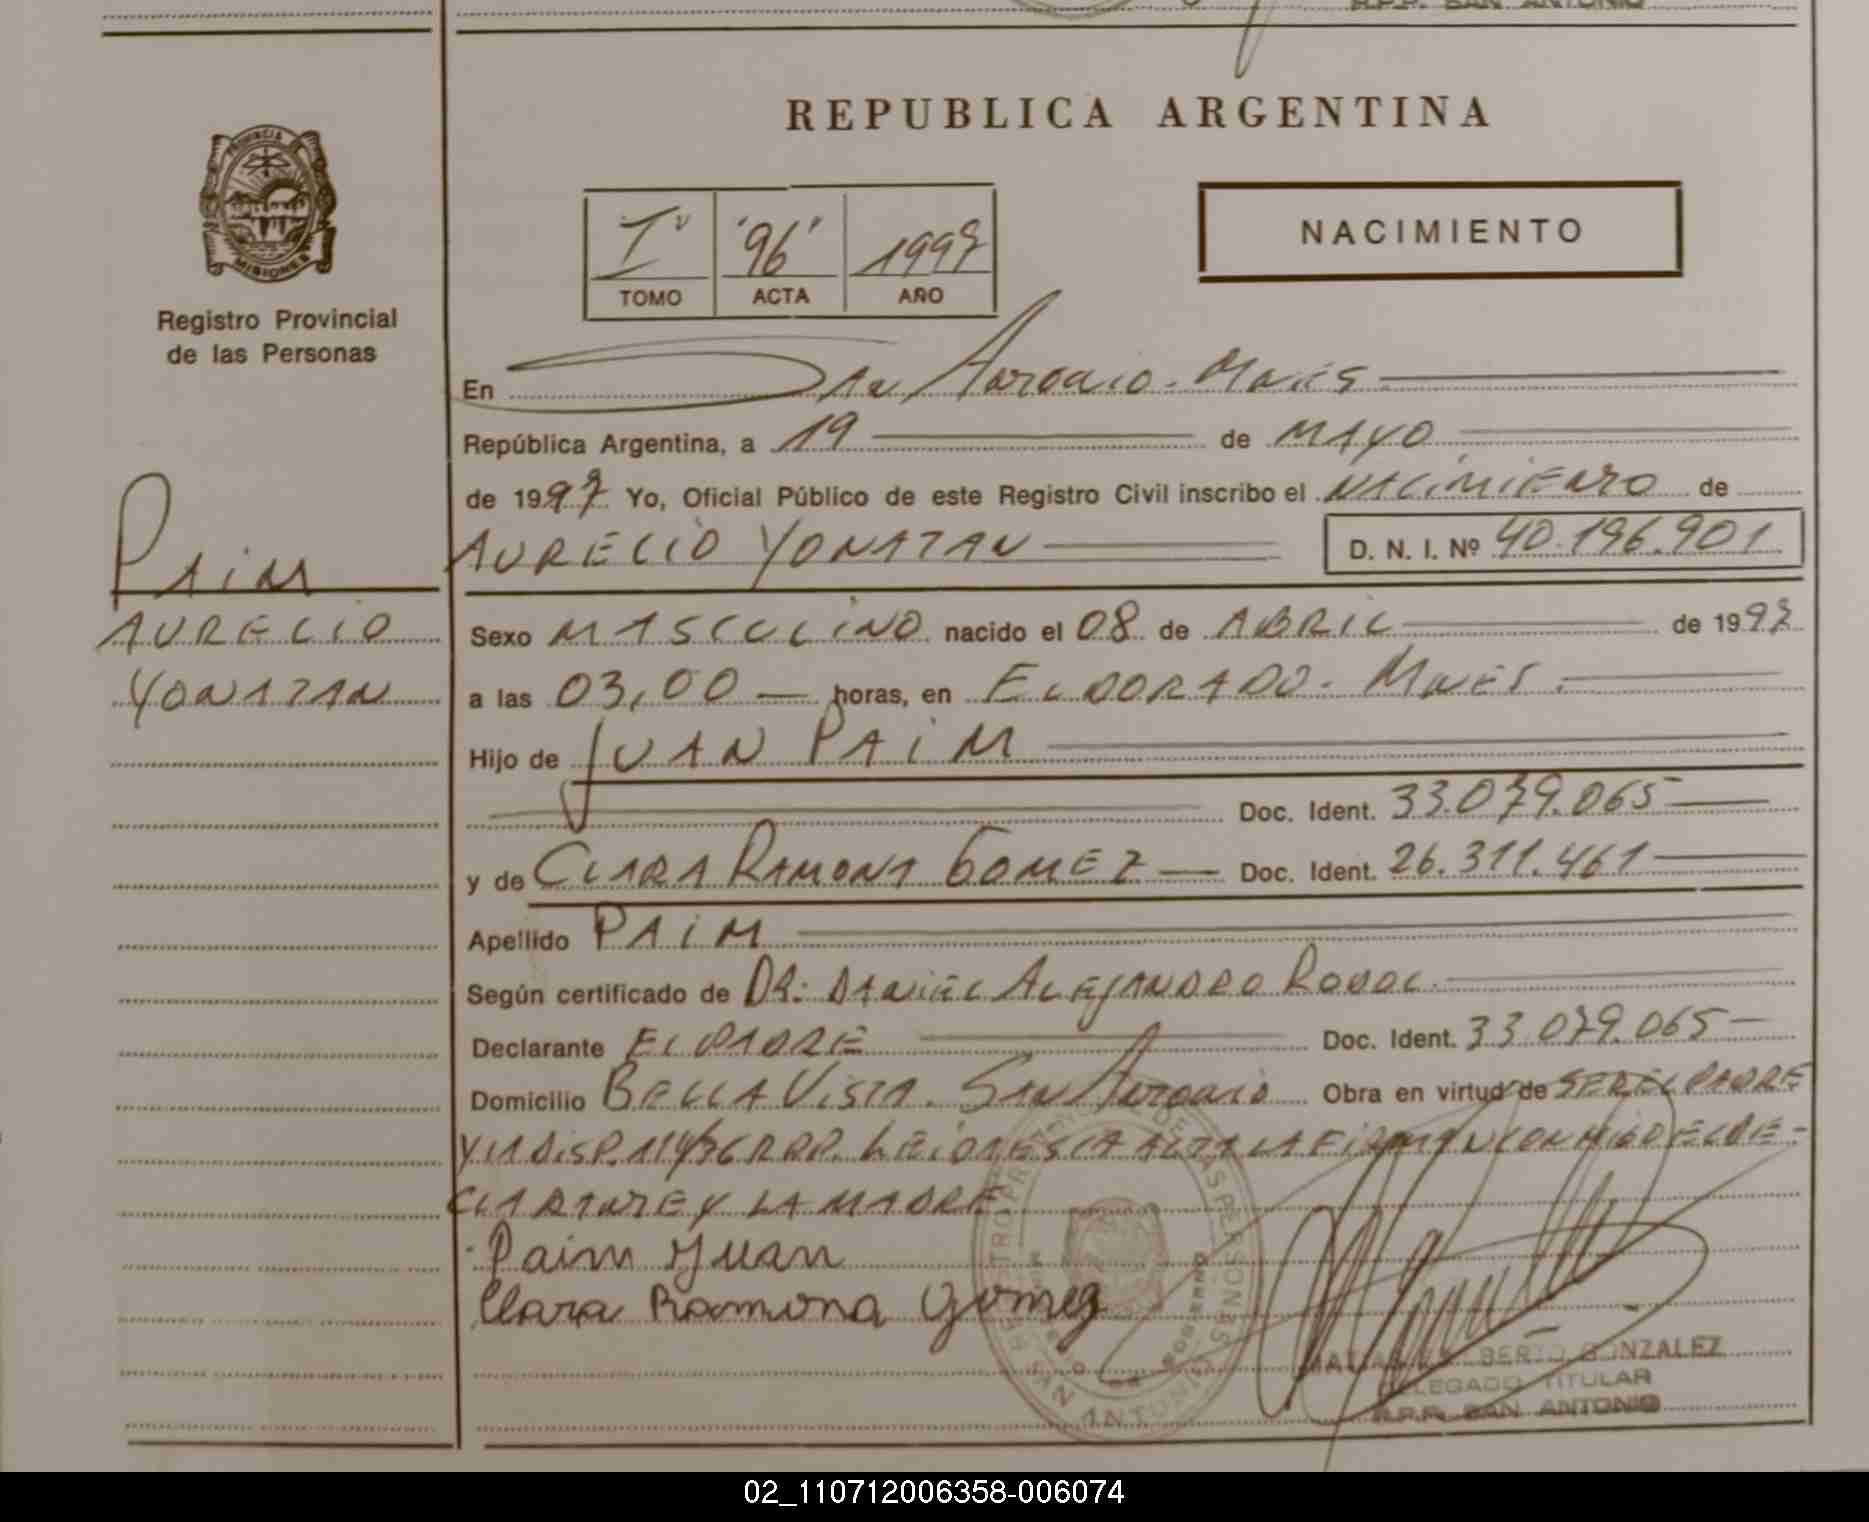 R.P.P. SAN ANTONIO
REPUBLICA ARGENTINA
PROVINCIA DE
MISIONES
Registro Provincial
de las Personas
Iº '96' 1997
TOMO ACTA AÑO
NACIMIENTO
En San Antonio - Mnes
República Argentina, a 19 de MAYO
de 1997 Yo, Oficial Público de este Registro Civil inscribo el NACIMIENTO de
AURELIO YONATAN D. N. I. Nº 40.196.901
PAIM
AURELIO
YONATAN
Sexo MASCULINO nacido el 08 de ABRIL de 1997
a las 03,00 horas, en ELDORADO - MNES.
Hijo de JUAN PAIM
Doc. Ident. 33.079.065
y de CLARA RAMONA GOMEZ Doc. Ident. 26.311.461
Apellido PAIM
Según certificado de DR: DANIEL ALEJANDRO
Declarante EL PADRE Doc. Ident. 33.079.065
Domicilio BELLA VISTA. SAN ANTONIO Obra en virtud de SER EL PADRE
Y LA DISP. 114/96 RPP. LEIDA ESTA ACTA LA FIRMAN CONMIGO EL DE-
CLARANTE Y LA MADRE.
Paim Juan
Clara Ramona Gomez
SAN ANTONIO
BERTO GONZALEZ
DELEGADO TITULAR
R.P.P. SAN ANTONIO
02_110712006358-006074